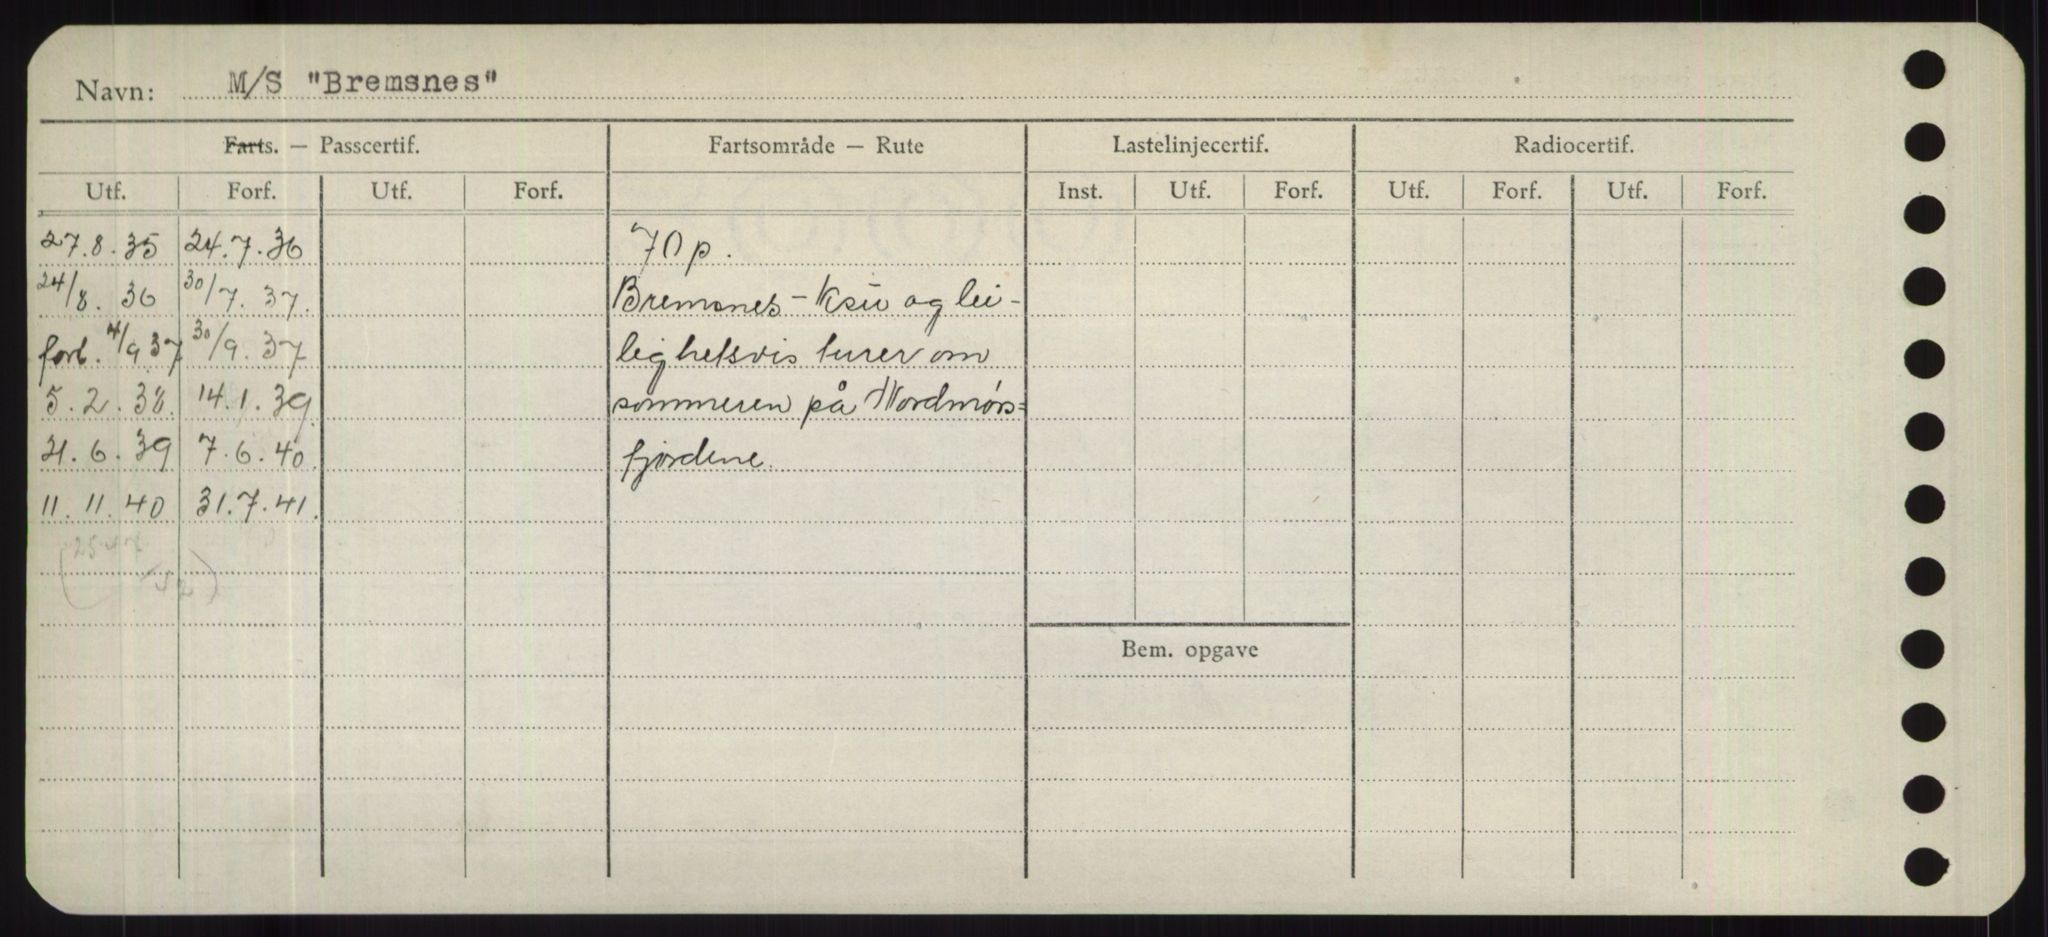 Navn: M/S "Bremsnes"
Farts. — Passcertif. Fartsområde — Rute Lastelinjecertif. Radiocertif.
Utf. Forf. Utf. Forf. Inst. Utf. Forf. Utf. Forf. Utf. Forf.
27.8.35 24.7.36 70 p.
24/8. 36 30/7. 37. Bremsnes - Ksu og lei-
forl. 4/9 37 30/9. 37 lighetsvis turer om
5. 2. 38. 14. 1. 39. sommeren på Nordmørs=
21. 6. 39 7. 6. 40. fjordene.
11. 11. 40 31. 7. 41.
Bem. opgave